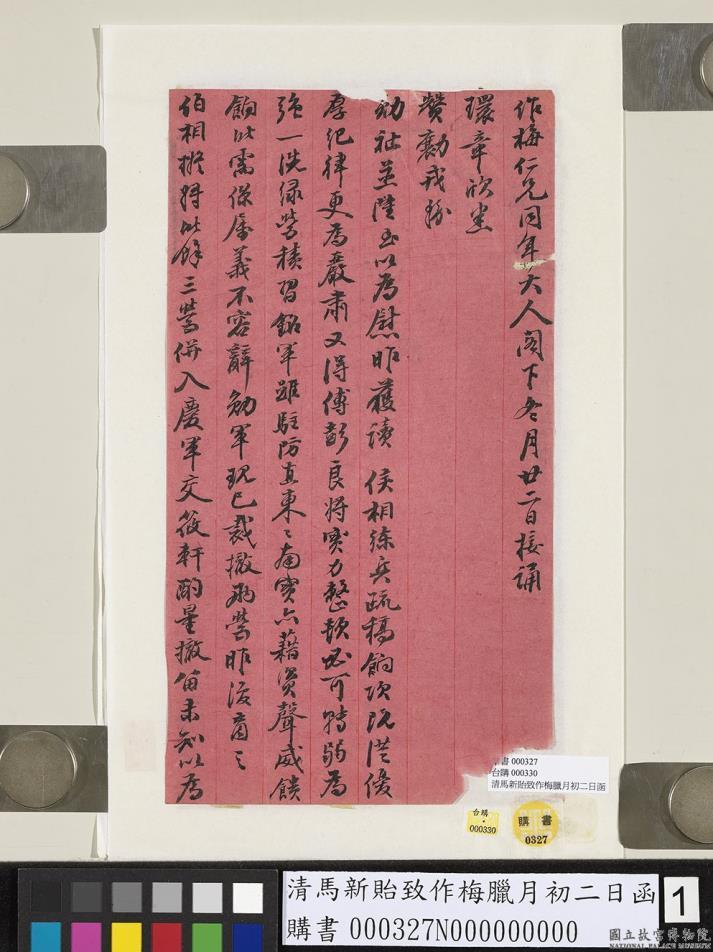 作梅仁兄同年大人閣下冬月廿二日接誦
環章欣悉
贊勷戎
勛祉並陞至以為慰昨獲讀 侯相練兵疏稿餉項既從優
厚紀律更為嚴肅又得傅彭良將實力整頓必可轉弱為
強一洗綠營積習銘軍雖駐防直東直東實亦藉資聲威饋
餉此需保屬義不容辭勛軍現已裁撤兩營昨復商商
伯相擬將此餘三營併入慶軍交筱軒酌量撤留未知以為
購書 000327
台購 000330
清馬新貽致作梅臘月初二日函
台購
000330
購 書
0327
清馬新貽致作梅臘月初二日函
購書 000327N000000000
1
國立故宮博物院
NATIONAL PALACE MUSEUM